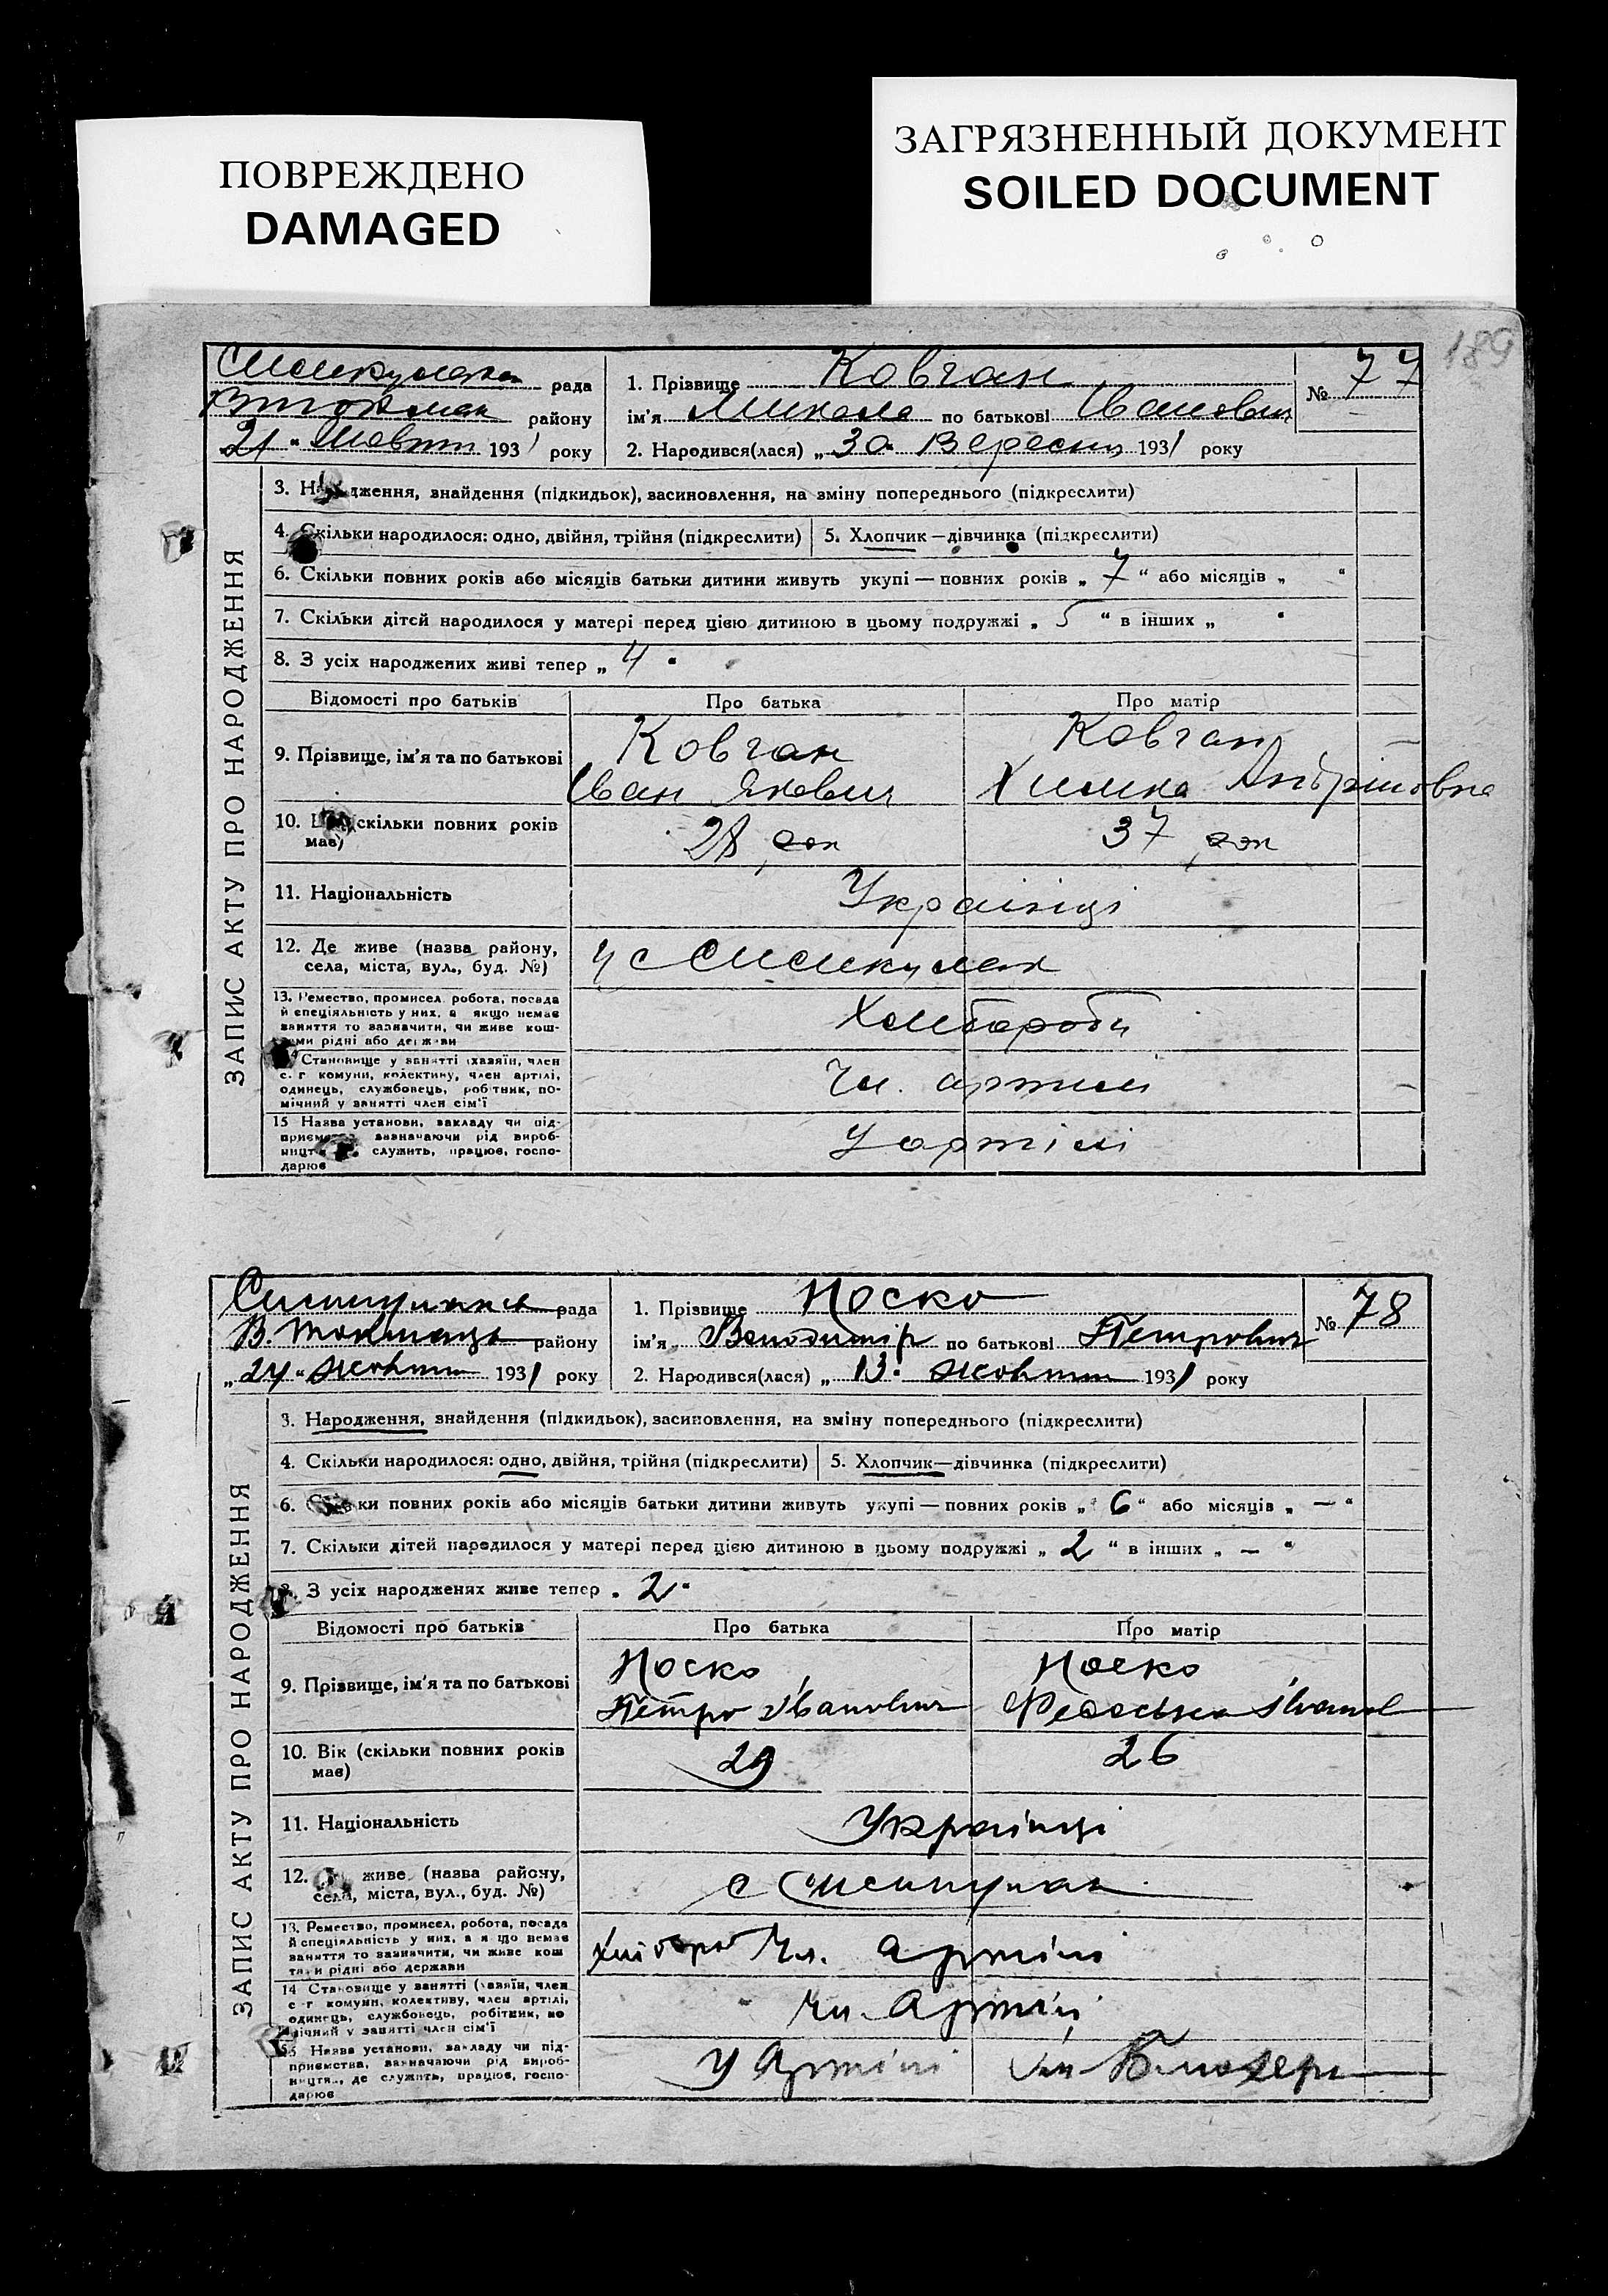 ПОВРЕЖДЕНО
DAMAGED
ЗАГРЯЗНЕННЫЙ ДОКУМЕНТ
SOILED DOCUMENT
189
ЗАПИС АКТУ ПРО НАРОДЖЕННЯ
рада
району
21 " Жовтн 1931 року
1. Прізвище Ковган
№ 77
ім'я Микола по батькові Іванович
2. Народився(лася) „ 30 " Вересня 1931 року
3. Народження, знайдення (підкидьок), засиновлення, на зміну попереднього (підкреслити)
4. Скільки народилося: одно, двійня, трійня (підкреслити) 5. Хлопчик — дівчинка (підкреслити)
6. Скільки повних років або місяців батьки дитини живуть укупі — повних років „ 7 “ або місяців „ “
7. Скільки дітей народилося у матері перед цією дитиною в цьому подружжі „ 5 “ в інших „ “
8. З усіх народжених живі тепер „ 4 "
Відомості про батьків Про батька Про матір
9. Прізвище, ім'я та по батькові
Ковган Ковган
Іван Якович
10. Вік (скільки повних років має)
28 37
11. Національність
Українці
12. Де живе (назва району,
села, міста, вул., буд. №)
у с
13. Ремество, промисел, робота, посада
й спеціяльність у них, а якщо немає
заняття то зазначити, чи живе кош-
тами рідні або держави
Хлібороби
14 Становище у занятті (хазяїн, член
с.-г комуни, колективу, член артілі,
одинець, службовець, робітник, по-
мічний у занятті член сім'ї
Чл. артілі
15 Назва установи, закладу чи під-
приємства, зазначаючи рід вироб-
ництва, де служить, працює, госпо-
дарює
У артілі
ЗАПИС АКТУ ПРО НАРОДЖЕННЯ
рада
В. Токмацьк району
„ 24 " жовтня 1931 року
1. Прізвище Носко
№ 78
ім'я Володимір по батькові Петрович
2. Народився(лася) „ 13 " жовтня 1931 року
3. Народження, знайдення (підкидьок), засиновлення, на зміну попереднього (підкреслити)
4. Скільки народилося: одно, двійня, трійня (підкреслити) 5. Хлопчик — дівчинка (підкреслити)
6. Скільки повних років або місяців батьки дитини живуть укупі — повних років „ 6 “ або місяців „ — “
7. Скільки дітей народилося у матері перед цією дитиною в цьому подружжі „ 2 “ в інших „ — “
8. З усіх народжених живе тепер „ 2 "
Відомості про батьків Про батька Про матір
9. Прізвище, ім'я та по батькові
Носко Носко
Петро Іванович Федоська Іванов
10. Вік (скільки повних років має)
29 26
11. Національність
Українці
12. Де живе (назва району,
села, міста, вул., буд. №)
с
13. Ремество, промисел, робота, посада
й спеціяльність у них, а якщо немає
заняття то зазначити, чи живе кош
тами рідні або держави
Хлібороб Чл. артілі
14 Становище у занятті (хазяїн, член
с-г комуни, колективу, член артілі,
одинець, службовець, робітник, по
мічний у занятті член сім'ї
Чл. Артілі
15 Назва установи, закладу чи під-
приємства, зазначаючи рід вироб-
ництва, де служить, працює, госпо-
дарює
У Артілі